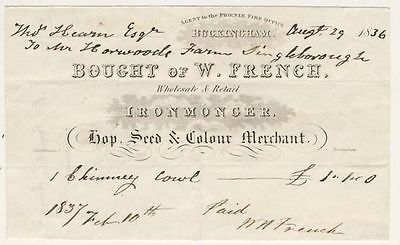 AGENT to the PHOENIX FIRE OFFICE
BUCKINGHAM, Augt 29 1836
Thos Hearn Esqr
To Mr Horwoods Farm Singleborough
BOUGHT OF W. FRENCH,
Wholesale & Retail
IRONMONGER,
Hop, Seed & Colour Merchant.
1 Chimney Cowl — £ 1 . 1 . 0
1837 Feb 10th Paid
W French